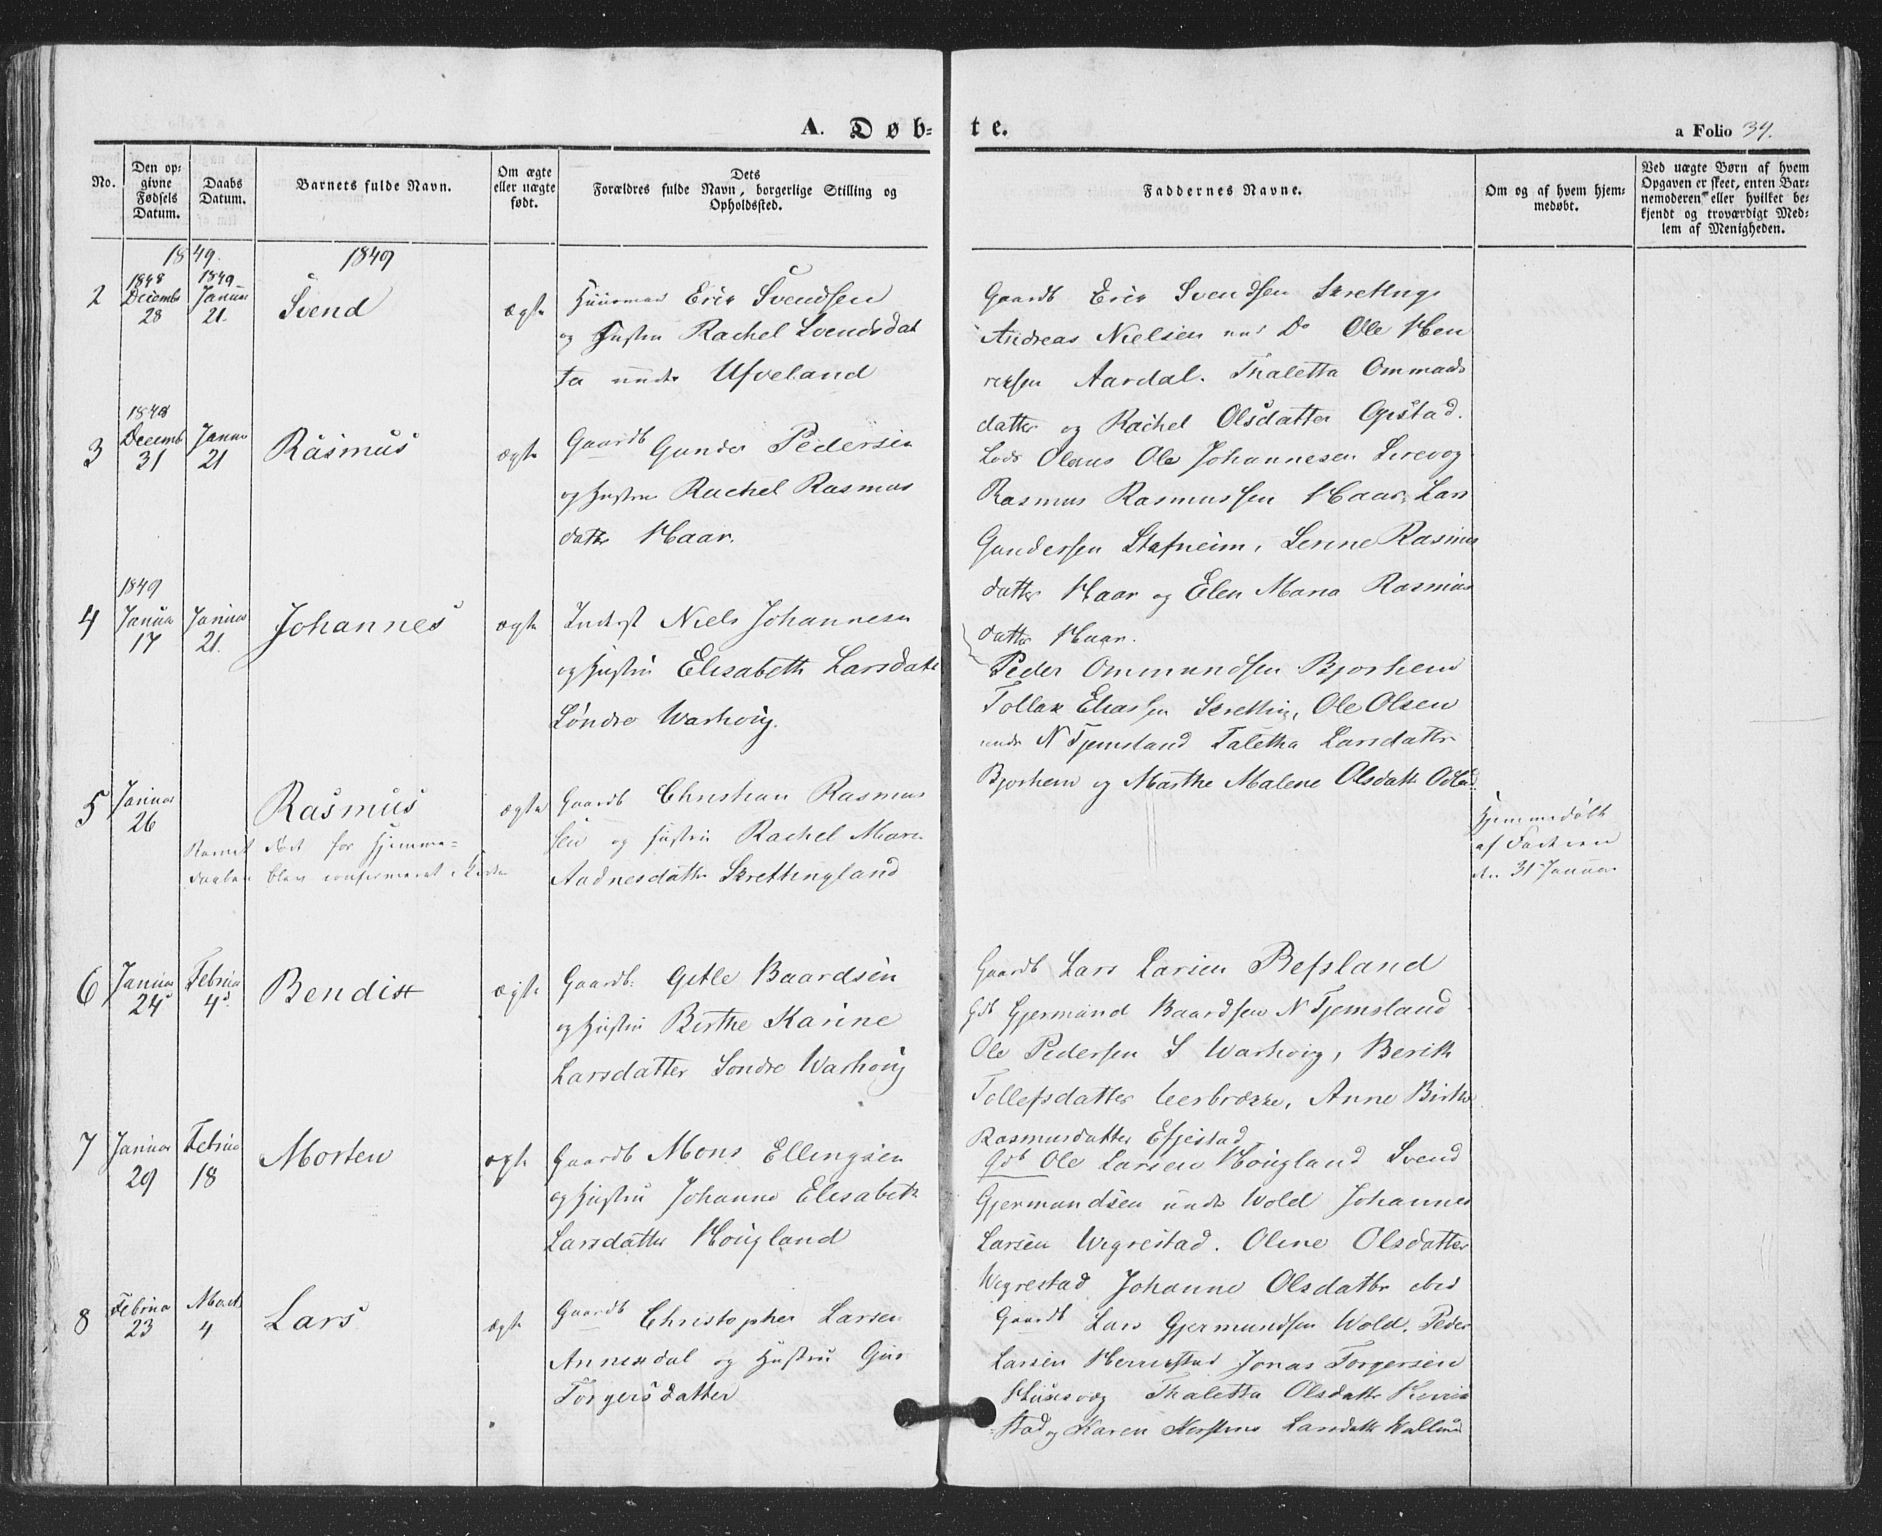 A. Døb-
te.
a Folio 39.
No.
Den op-
givne
Fødsels
Datum.
Daabs
Datum.
Barnets fulde Navn.
Om ægte
eller uægte
født.
Dets
Forældres fulde Navn, borgerlige Stilling og
Opholdssted.
Faddernes Navne.
Om og af hvem hjem-
medøbt.
Ved uægte Børn af hvem
Opgaven er skeet, enten Bar-
nemoderen eller hvilket be-
kjendt og troværdigt Med-
lem af Menigheden.
1849.
1849
2
1848
Decembr
28
1849
Januar
21.
Svend
ægte
Huusmand Eric Svendsen
og Hustru Rachel Svendsdat
ter under Ufveland
Gaardb Eric Svendsen Skretting
Andreas Nielsen und Do Ole Hen
riksen Aardal. Thaletta Ommunds
datter og Rachel Olsdatter Opstad.
3
1848
Decemb
31
Januar
21
Rasmus
ægte
Gaardb Gunder Pedersen
og Hustru Rachel Rasmus
datter Haar.
Lods Olaus Ole Johannesen Sirevog
Rasmus Rasmussen Haar, Lars
Gundersen Stafneim, Serine Rasmus
datter Haar og Elen Maria Rasmus
datter Haar.
4
1849
Januar
17
Januar
21.
Johannes
ægte
Inderst Niels Johannesen
og Hustru Elisabeth Larsdatter
Søndre Warhoug.
Peder Ommundsen Bjorhem
Tollax Eliassen Skretting, Ole Olsen
under N Tjemsland Taletha Larsdatter
Bjorhem og Marthe Malene Olsdatt Odland
5
Januar
26
Rasmus
Barnet død for Hjemme-
daaben blev confirmeret i Kirken
ægte
Gaardb Christian Rasmus
sen og Hustru Rachel Maria
Aadnesdatter Skrettingland
Hjemmedøbt
af Faderen
den 31 Januar
6
Januar
24
Februar
4
Bendix
ægte
Gaardb. Getle Baardsen
og Hustru Birthe Karine
Larsdatter Sondre Warhoug
Gaardb Lars Larsen Refsland
Gdb Gjermund Baardsen N Tjemsland
Ole Pedersen S Warhoug, Berith
Tollefsdatter Leerbrække, Anne Birthe
Rasmusdatter Efjestad
7
Januar
29
Februar
18
Morten
ægte
Gaardb Mons Ellingsen
og Hustru Johanne Elisabeth
Larsdatter Hougland
Gdb Ole Larsen Hougland Svend
Gjermundsen under Wold Johannes
Larsen Wegrestad. Oline Olsdatter
Wegrestad Johanne Olsdatter ibid
8
Februar
23
Marts
4
Lars
ægte
Gaardb Christopher Larsen
Annisdal og Hustru Guri
Torgersdatter
Gaardb Lars Gjermundsen Wold. Peder
Larsen Herrestad Jonas Torgersen
Husevæg Thaletta Olsdatter Herre
stad og Karen Kirstine Larsdatter